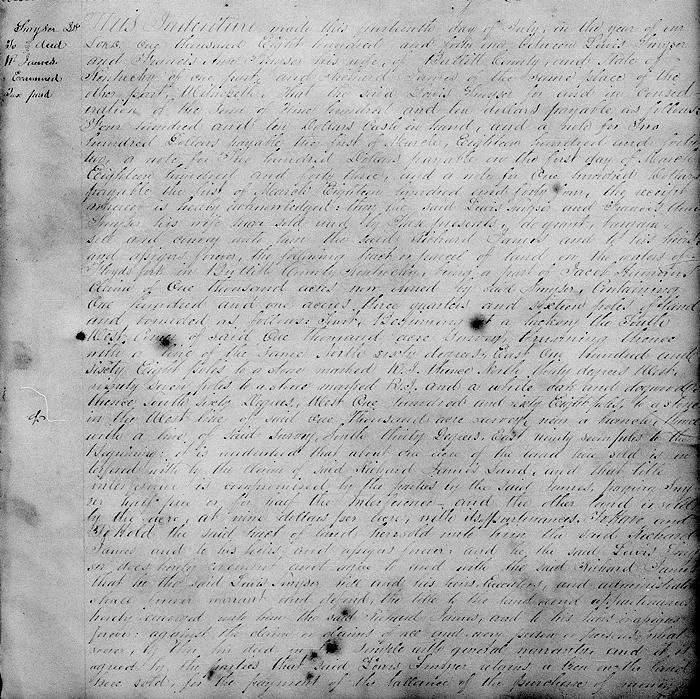 Smyser Lr
To deed
R. James
Examined
Tax paid
This Indenture made this fourteenth day of July, in the year of our
Lord One thousand Eight hundred and forty one, between Lewis Smyser
and Frances Ann Smyser his wife, of Bullitt County, and State of
Kentucky of one part, and Richard James of the same place of the
other part, Witnesseth, That the said Lewis Smyser in and in consid
eration of the Sum of Nine hundred and ten dollars payable as follows
Four hundred and ten Dollars Cash in hand, and a note for Two
hundred Dollars payable the first of March, Eighteen hundred and forty
two, a note for Two hundred Dollars payable on the first day of March
Eighteen hundred and forty three, and a note for One hundred Dollars
payable the first of March Eighteen hundred and forty four, the receipt
whereof is hereby acknowledged; they the said Lewis Smyser and Frances Ann
Smyser his wife have sold and by these presents, do grant, bargain,
sell and convey unto him the said Richard James and to his heirs
and assigns forever, the following tract or parcel of land on the waters of
Floyds fork in Bullitt County Kentucky, being a part of Jacob
Claim of One thousand acres now owned by said Smyser, Containing
One hundred and one acres, three quarters and sixteen poles of land
and bounded as follows: To wit, Beginning at a the South
West line of said One thousand acre Survey, running thence
with a line of the same North sixty degrees, East One hundred and
sixty Eight poles to a stone marked R.S. thence North thirty degrees West,
ninety Seven poles to a stone marked R.S. and a white oak and dogwood
thence South sixty degrees, West One hundred and sixty Eight poles to a stone
in the West line of said One Thousand acre survey, near a thence
with a line of said survey, South thirty degrees, East ninety seven poles to the
Beginning: it is understood that about one acre of the land here sold is in
terfered with by the claim of said Richard James Land, and that little
interference is compromised by the parties by the said James, paying Smy
ser half price or for half the Interference and the other land is sold
by the acre, at nine dollars per acre, with its appurtenances. To have and
To hold the said tract of land here sold unto him the said Richard
James and to his heirs and assigns forever: and he the said Lewis Smy
ser does hereby covenant and agree to and with the said Richard James
that he the said Lewis Smyser will and his heirs, Executors, and administrators
shall forever warrant and defend, the title to the land and appurtenances
hereby conveyed unto him the said Richard James, and to his heirs & assigns
forever: against the claim or claims of all and every person or persons what
soever, by this his deed in fee simple with general warranty and it is
agreed by the parties that said Lewis Smyser retains a lien on the land
here sold, for the payment of the ballance of the purchase of money